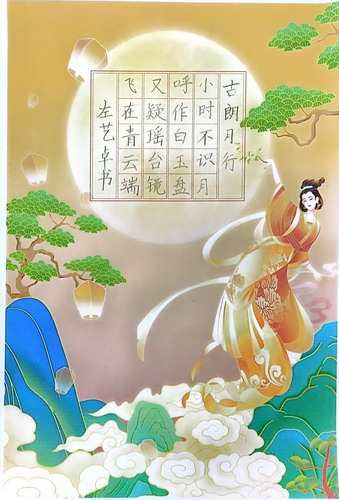 古朗月行
小时不识月
呼作白玉盘
又疑瑶台镜
飞在青云端
左艺卓书